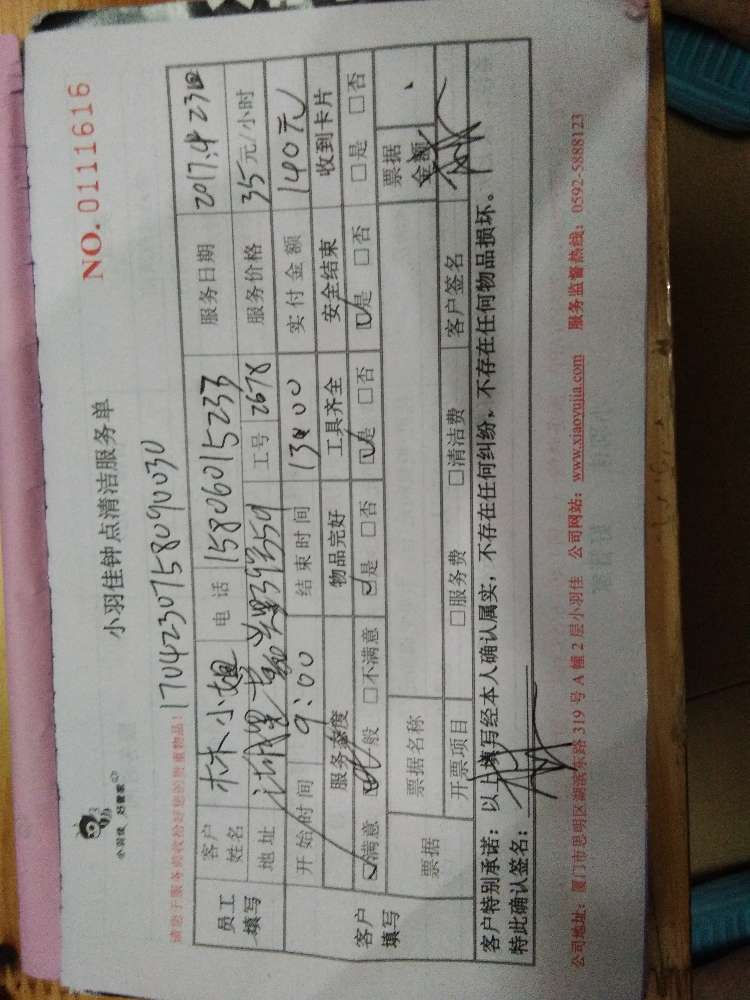 小羽佳 好管家
小羽佳钟点清洁服务单
NO. 0111616
请您于服务前收拾好您的贵重物品!
1704230758090030
员工填写
客户姓名 林小姐 电话 15806015233 服务日期 2017.4 23日
地址 工号 2678 服务价格 35元/小时
开始时间 9:00 结束时间 13:00 实付金额 140元
客户填写
服务态度 物品完好 工具齐全 安全结束 收到卡片
☑满意 ☑一般 □不满意 ☑是 □否 ☑是 □否 ☑是 □否 □是 □否
票据 票据名称 票据金额
开票项目 □服务费 □清洁费 客户签名
客户特别承诺:以上填写经本人确认属实,不存在任何纠纷,不存在任何物品损坏。
特此确认签名:
公司地址:厦门市思明区湖滨东路 319 号 A 幢 2 层小羽佳 公司网站:www.xiaoyujia.com 服务监督热线:0592-5888123